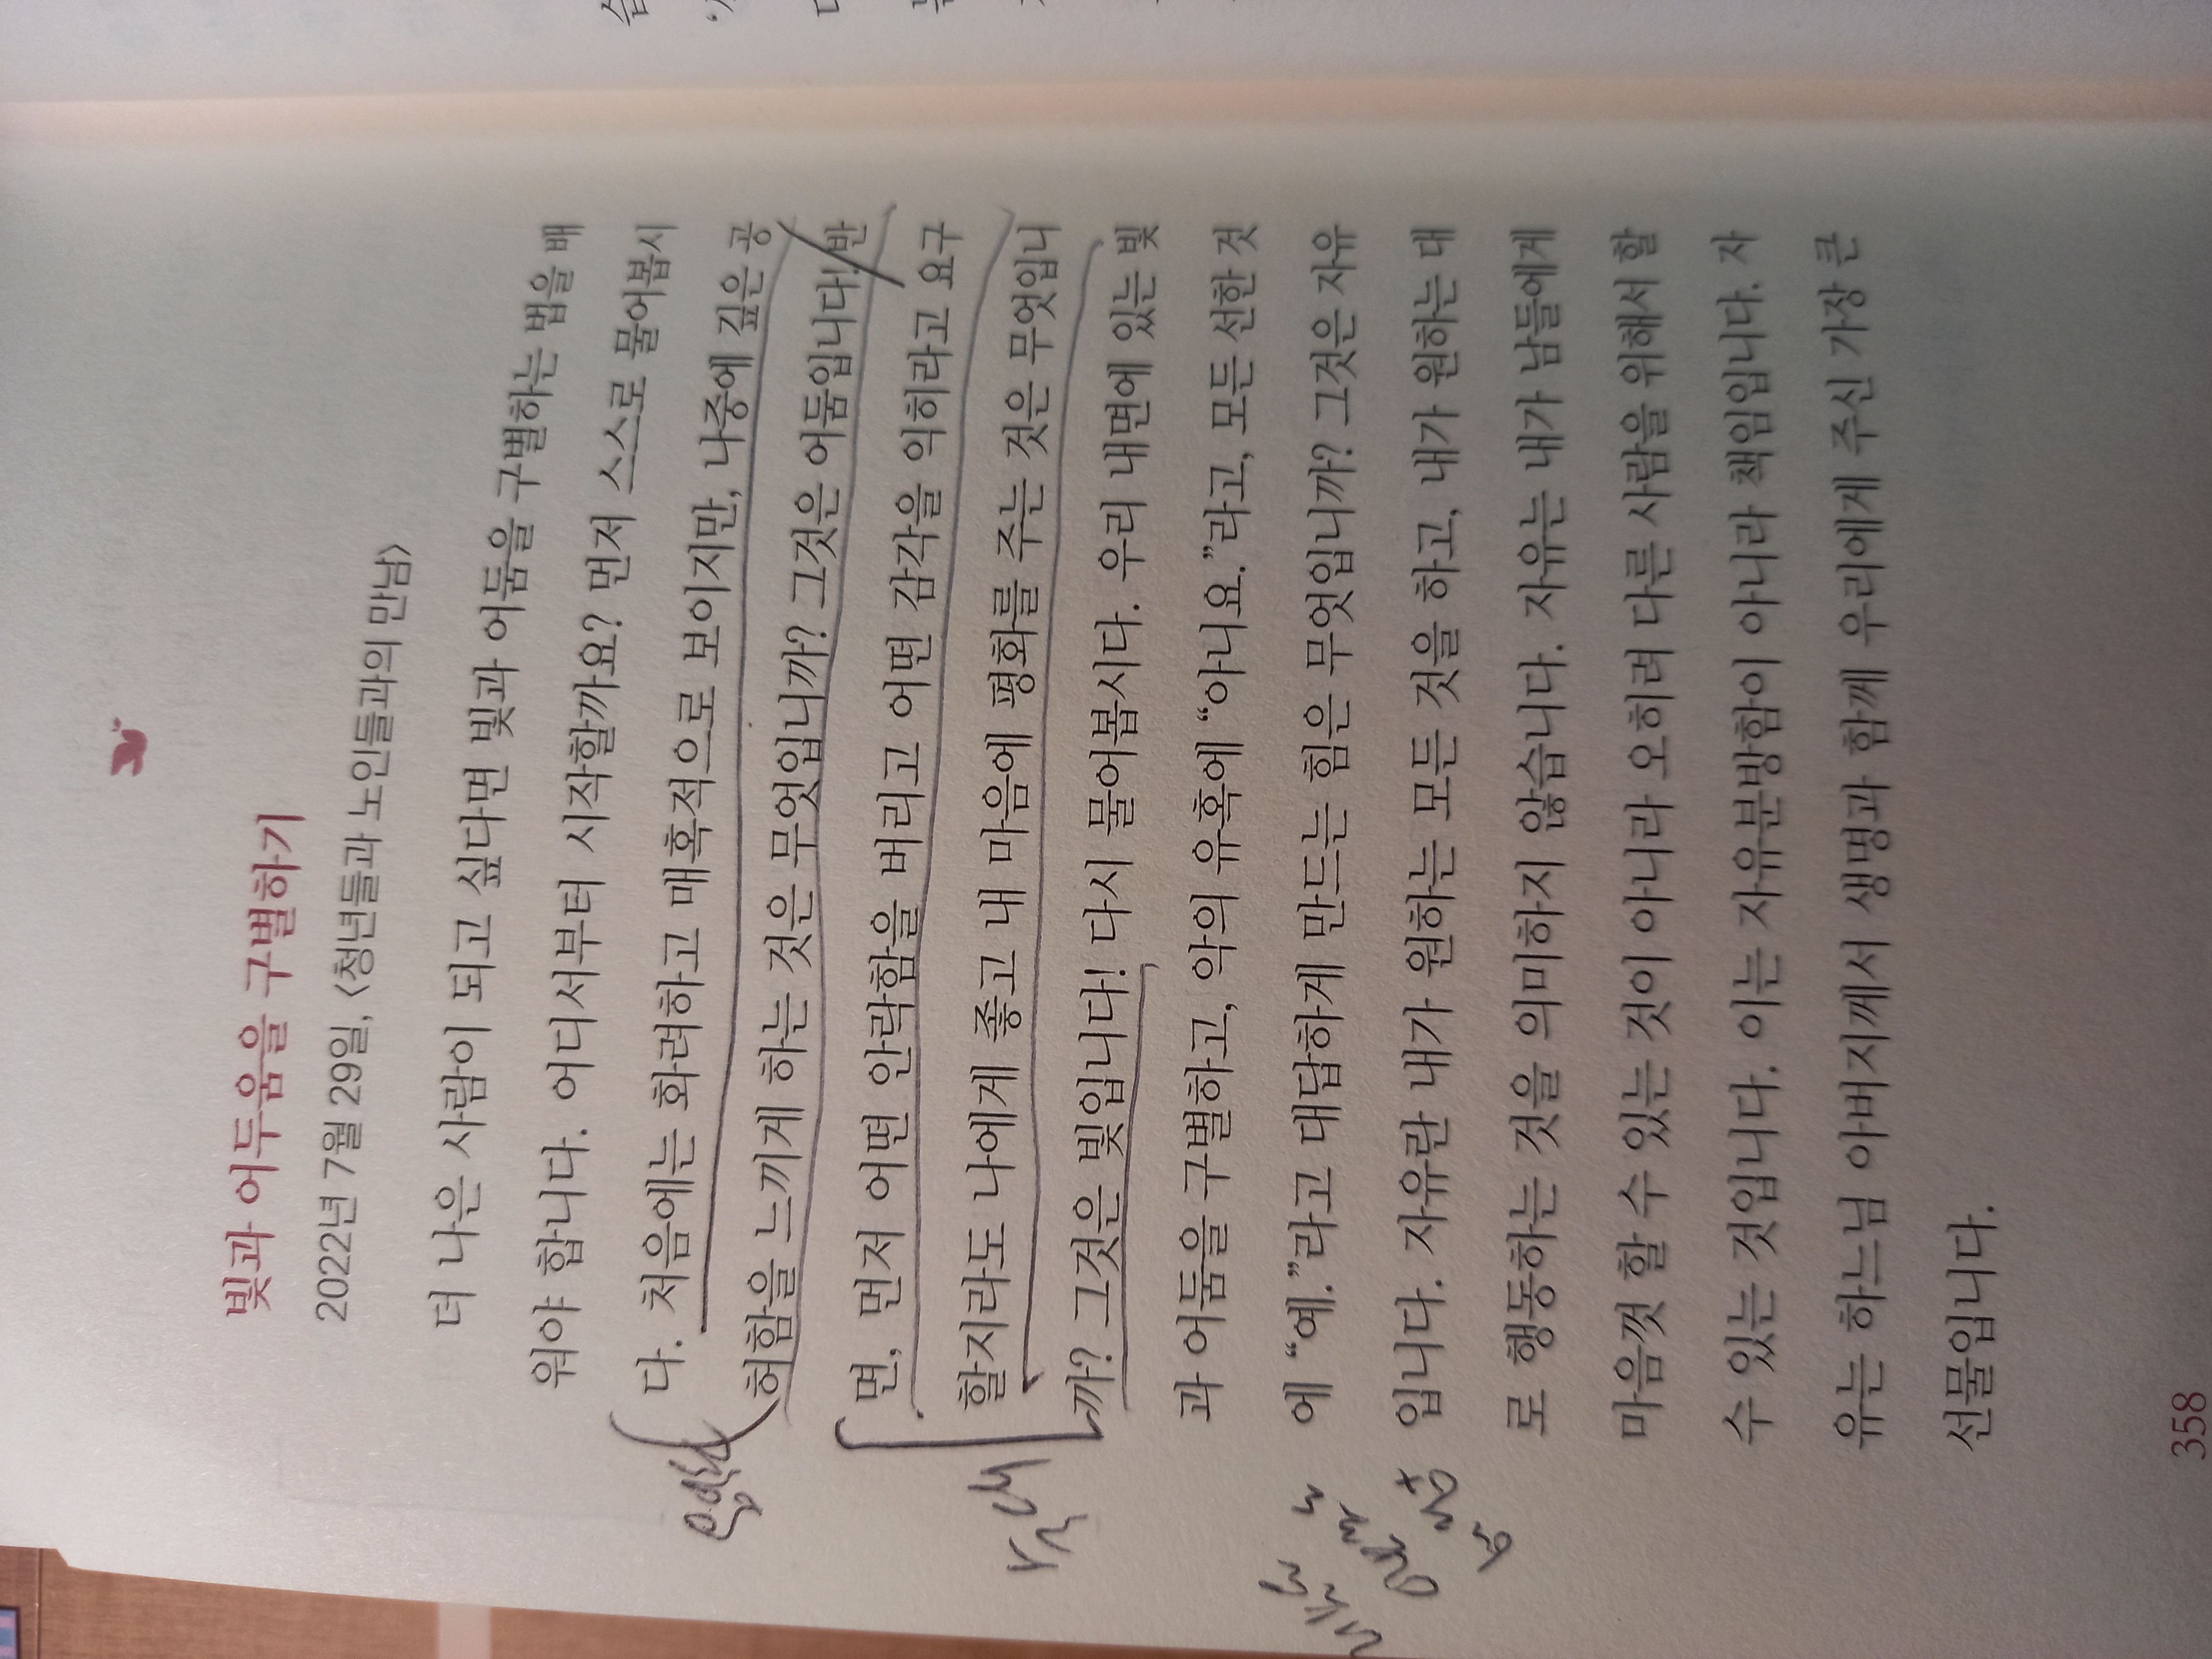 빛과 어두움을 구별하기
2022년 7월 29일, <청년들과 노인들과의 만남>
더 나은 사람이 되고 싶다면 빛과 어둠을 구별하는 법을 배
워야 합니다. 어디서부터 시작할까요? 먼저 스스로 물어봅시
다. 처음에는 화려하고 매혹적으로 보이지만, 나중에 깊은 공
허함을 느끼게 하는 것은 무엇입니까? 그것은 어둠입니다! 반
면, 먼저 어떤 안락함을 버리고 어떤 감각을 익히라고 요구
할지라도 나에게 좋고 내 마음에 평화를 주는 것은 무엇입니
까? 그것은 빛입니다! 다시 물어봅시다. 우리 내면에 있는 빛
과 어둠을 구별하고, 악의 유혹에 “아니요.”라고, 모든 선한 것
에 “예.”라고 대답하게 만드는 힘은 무엇입니까? 그것은 자유
입니다. 자유란 내가 원하는 모든 것을 하고, 내가 원하는 대
로 행동하는 것을 의미하지 않습니다. 자유는 내가 남들에게
마음껏 할 수 있는 것이 아니라 오히려 다른 사람을 위해서 할
수 있는 것입니다. 이는 자유분방함이 아니라 책임입니다. 자
유는 하느님 아버지께서 생명과 함께 우리에게 주신 가장 큰
선물입니다.
358